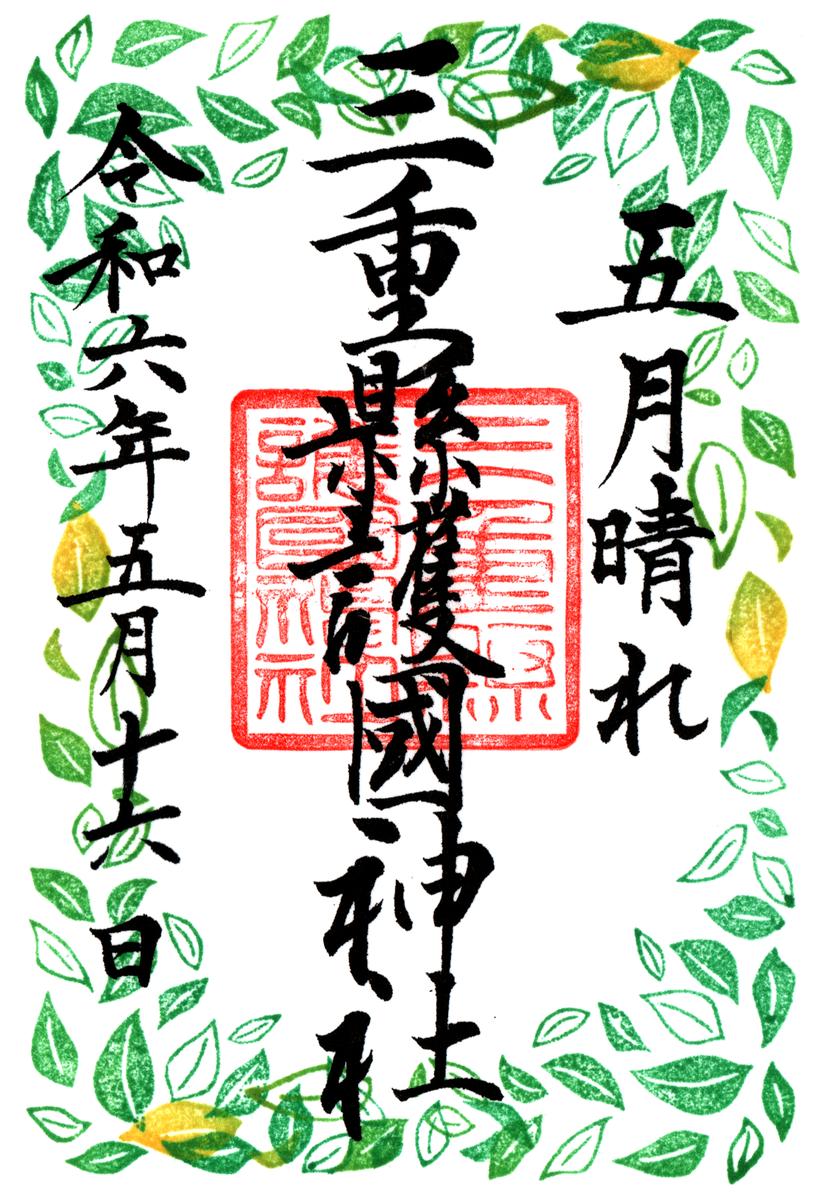 五月晴れ
三重縣護國神社
三重縣
護國神社
令和六年五月十六日